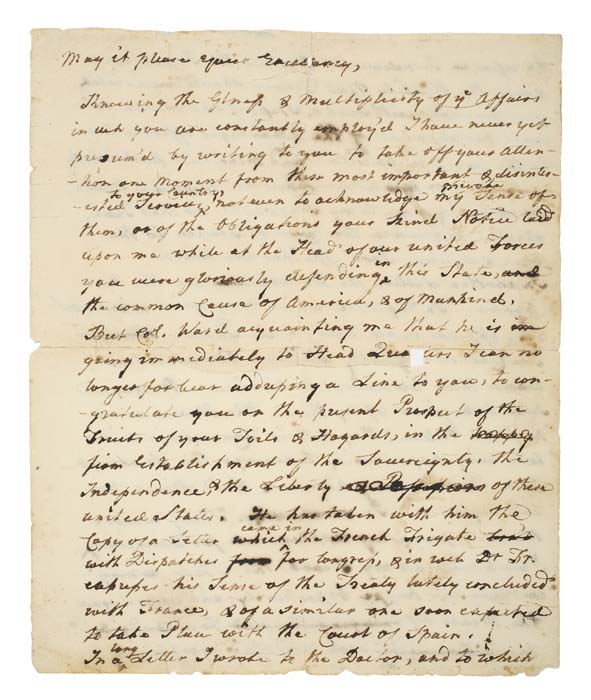 May it please your Excellency,
Knowing the Gtness & Multiplicity of ye Affairs
in wch you are constantly employ'd I have never yet
presum'd by writing to you to take off your Atten-
-tion one Moment from these most important & disinter-
to your Country private
-ested Services, not even to acknowledge my Sense of
them, or of the Obligations your kind Notice laid
upon me while at the Head of our united Forces
in
you were gloriously defending this State, and
the common Cause of America, & of Mankind.
But Col. Ward acquainting me that he is im
going immediately to Head Quarters I can no
longer forbear addressing a Line to you, to con-
-gratulate you on the present Prospect of the
Fruits of your Toils & Hazards, in the happy
firm Establishment of the Sovereignty, the
Independence, & the Liberty of these
united States. He has taken with him the
came in
Copy of a Letter which the French Frigate
with Dispatches from for Congress, & in wch Dr Fr.
expresses his Sense of the Treaty lately concluded
with France, & of a similar one soon expected
to take Place with the Court of Spain.
long
In a Letter I wrote to the Doctor, and to which